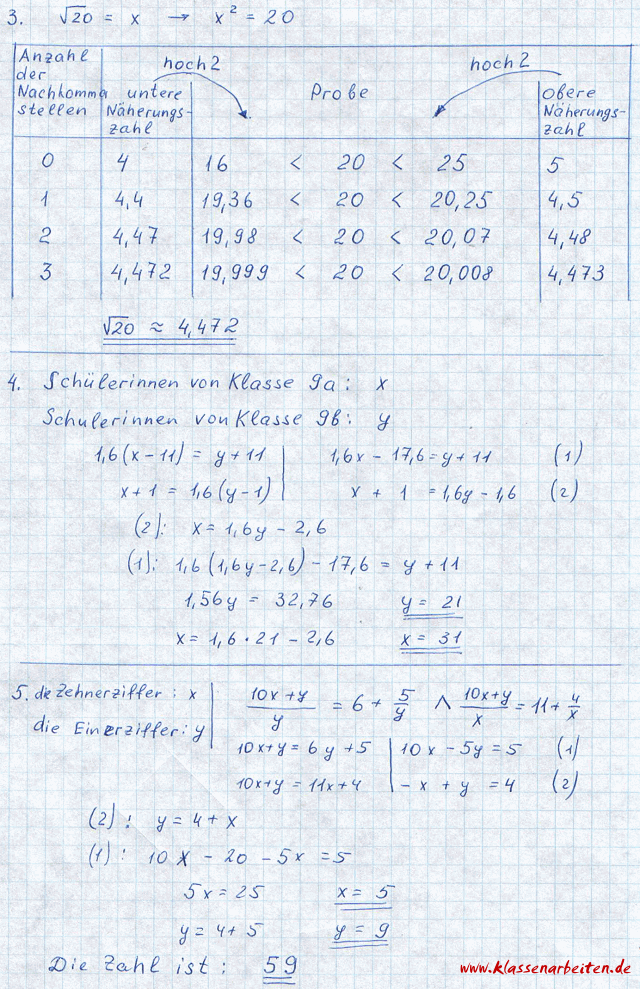 3. √20 = x → x² = 20
Anzahl der Nachkomma stellen | untere Näherungs- zahl | hoch 2 | Probe | hoch 2 | obere Näherungs- zahl
0 | 4 | 16 < 20 < 25 | 5
1 | 4,4 | 19,36 < 20 < 20,25 | 4,5
2 | 4,47 | 19,98 < 20 < 20,07 | 4,48
3 | 4,472 | 19,999 < 20 < 20,008 | 4,473
√20 ≈ 4,472
4. Schülerinnen von Klasse 9a: x
Schulerinnen von Klasse 9b: y
1,6(x-11) = y+11 | 1,6x - 17,6 = y+11 (1)
x+1 = 1,6(y-1) | x + 1 = 1,6y - 1,6 (2)
(2): x = 1,6y - 2,6
(1): 1,6(1,6y-2,6) - 17,6 = y+11
1,56y = 32,76 y = 21
x = 1,6 · 21 - 2,6 x = 31
5. die Zehnerziffer: x | (10x+y)/y = 6 + 5/y ∧ (10x+y)/x = 11 + 4/x
die Einerziffer: y
10x+y = 6y+5 | 10x - 5y = 5 (1)
10x+y = 11x+4 | -x + y = 4 (2)
(2): y = 4 + x
(1): 10x - 20 - 5x = 5
5x = 25 x = 5
y = 4+5 y = 9
Die Zahl ist: 59
www.klassenarbeiten.de